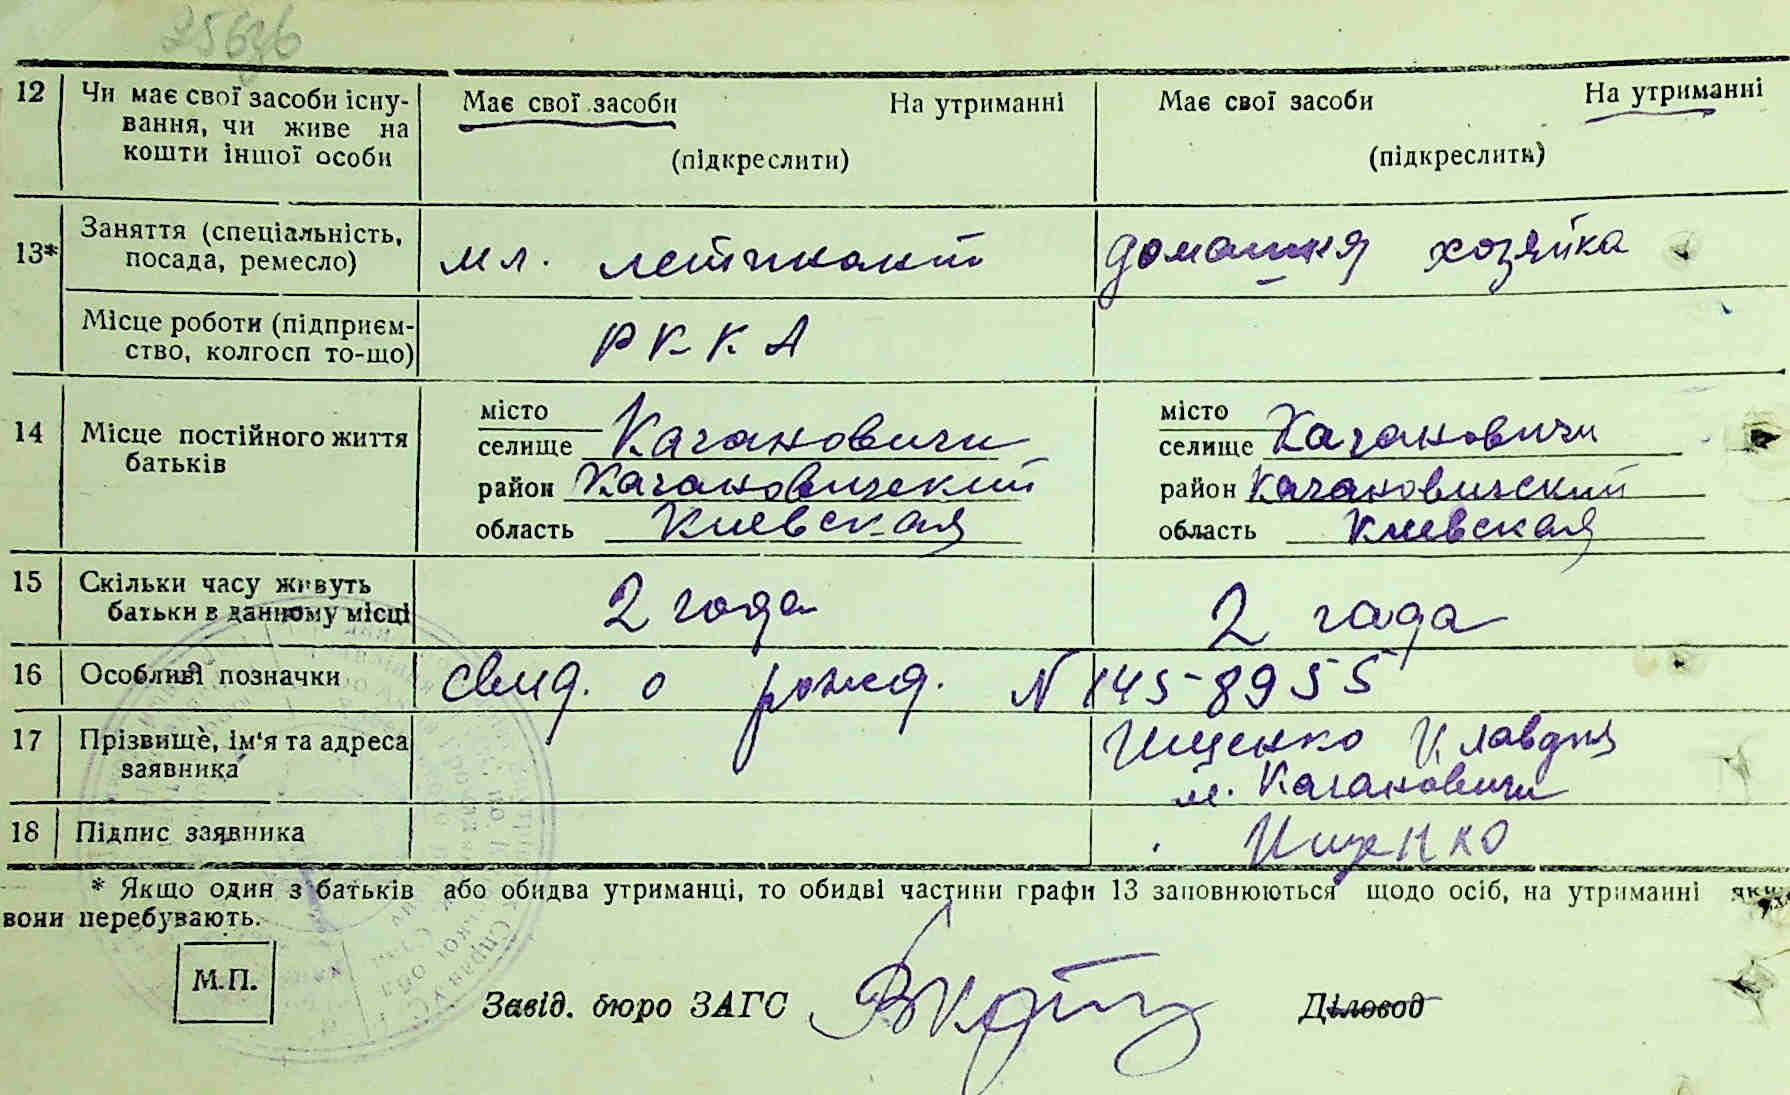 25676
12 Чи має свої засоби існу- Має свої засоби На утриманні Має свої засоби На утриманні
вання, чи живе на
кошти іншої особи (підкреслити) (підкреслити)
13* Заняття (спеціальність, мл. лейтинант домашня хозяйка
посада, ремесло)
Місце роботи (підприєм- РККА
ство, колгосп то-що)
14 Місце постійного життя місто місто
батьків селище Кагановичи селище Кагановичи
район Кагановичский район Кагановичский
область Киевская область Киевская
15 Скільки часу живуть 2 года 2 года
батьки в данному місці
16 Особливі позначки свид. о рожд. N 145-8955
17 Прізвище, ім'я та адреса Ищенко Клавдия
заявника м. Кагановичи
18 Підпис заявника Ищенко
* Якщо один з батьків або обидва утриманці, то обидві частини графи 13 заповнюються щодо осіб, на утриманні яких
вони перебувають.
М.П.
Завід. бюро ЗАГС Діловод